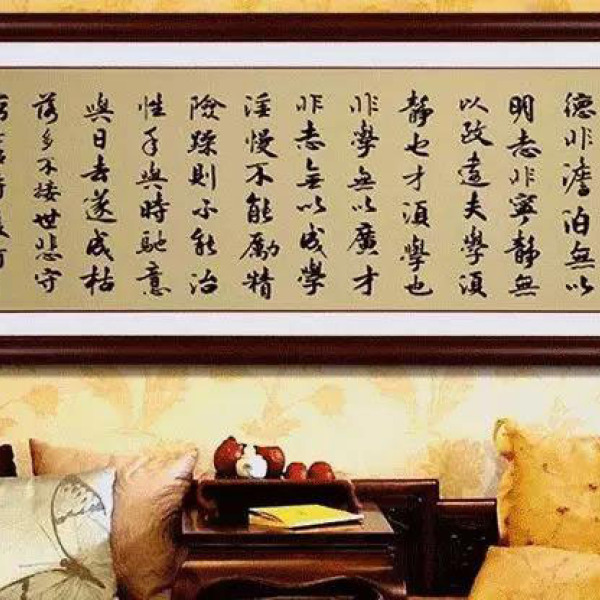 德非澹泊無以
明志非寧靜無
以致遠夫學須
靜也才須學也
非學無以廣才
非志無以成學
淫慢不能勵精
險躁則不能治
性年與時馳意
與日去遂成枯
落多不接世悲守